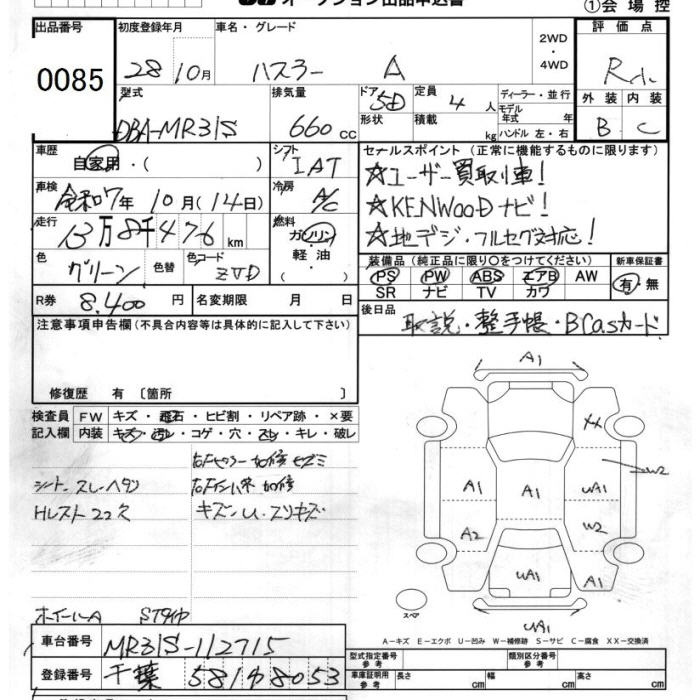 オークション出品申込書
①会場控
出品番号 初度登録年月 車名・グレード 評価点
0085 28 10月 ハスラー A 2WD・4WD R
型式 排気量 ドア 定員 ディーラー・並行 外装 内装
DBA-MR31S 660cc 5D 4人 モデル年式 年 B C
形状 積載 kg ハンドル 左・右
車歴 シフト セールスポイント (正常に機能するものに限ります)
自家用・( ) IAT ☆ユーザー買取車!
車検 令和7年 10月(14日) 冷房 A/C ☆KENWOODナビ!
走行 13万8千476km 燃料 ガソリン・軽油 ☆地デジ・フルセグ対応!
色 グリーン 色替 色コード ZVD 装備品(純正品に限り○をつけてください) 新車保証書
PS PW ABS エアB AW 有・無
SR ナビ TV カワ
R券 8,400円 名変期限 月 日 後日品 取説・整手帳・BCasカード
注意事項申告欄(不具合内容等は具体的に記入して下さい)
修復歴 有〔箇所 〕
検査員 FW キズ・飛石・ヒビ割・リペア跡・×要
記入欄 内装 キズ・汚レ・コゲ・穴・スレ・キレ・破レ
シート スレ・ヘタリ
Hレスト22欠 キズ・U・スリキズ
ホイールA
A1
A1 A1 UA1 W2
A2 W2
UA1 A1
スペア
UA1
A-キズ E-エクボ U-凹み W-補修跡 S-サビ C-腐食 XX-交換済
車台番号 MR31S-112715
型式指定番号 参考 類別区分番号 参考
登録番号 千葉 581 ゆ 8053
車庫証明用 参考 長さ cm 幅 cm 高さ cm